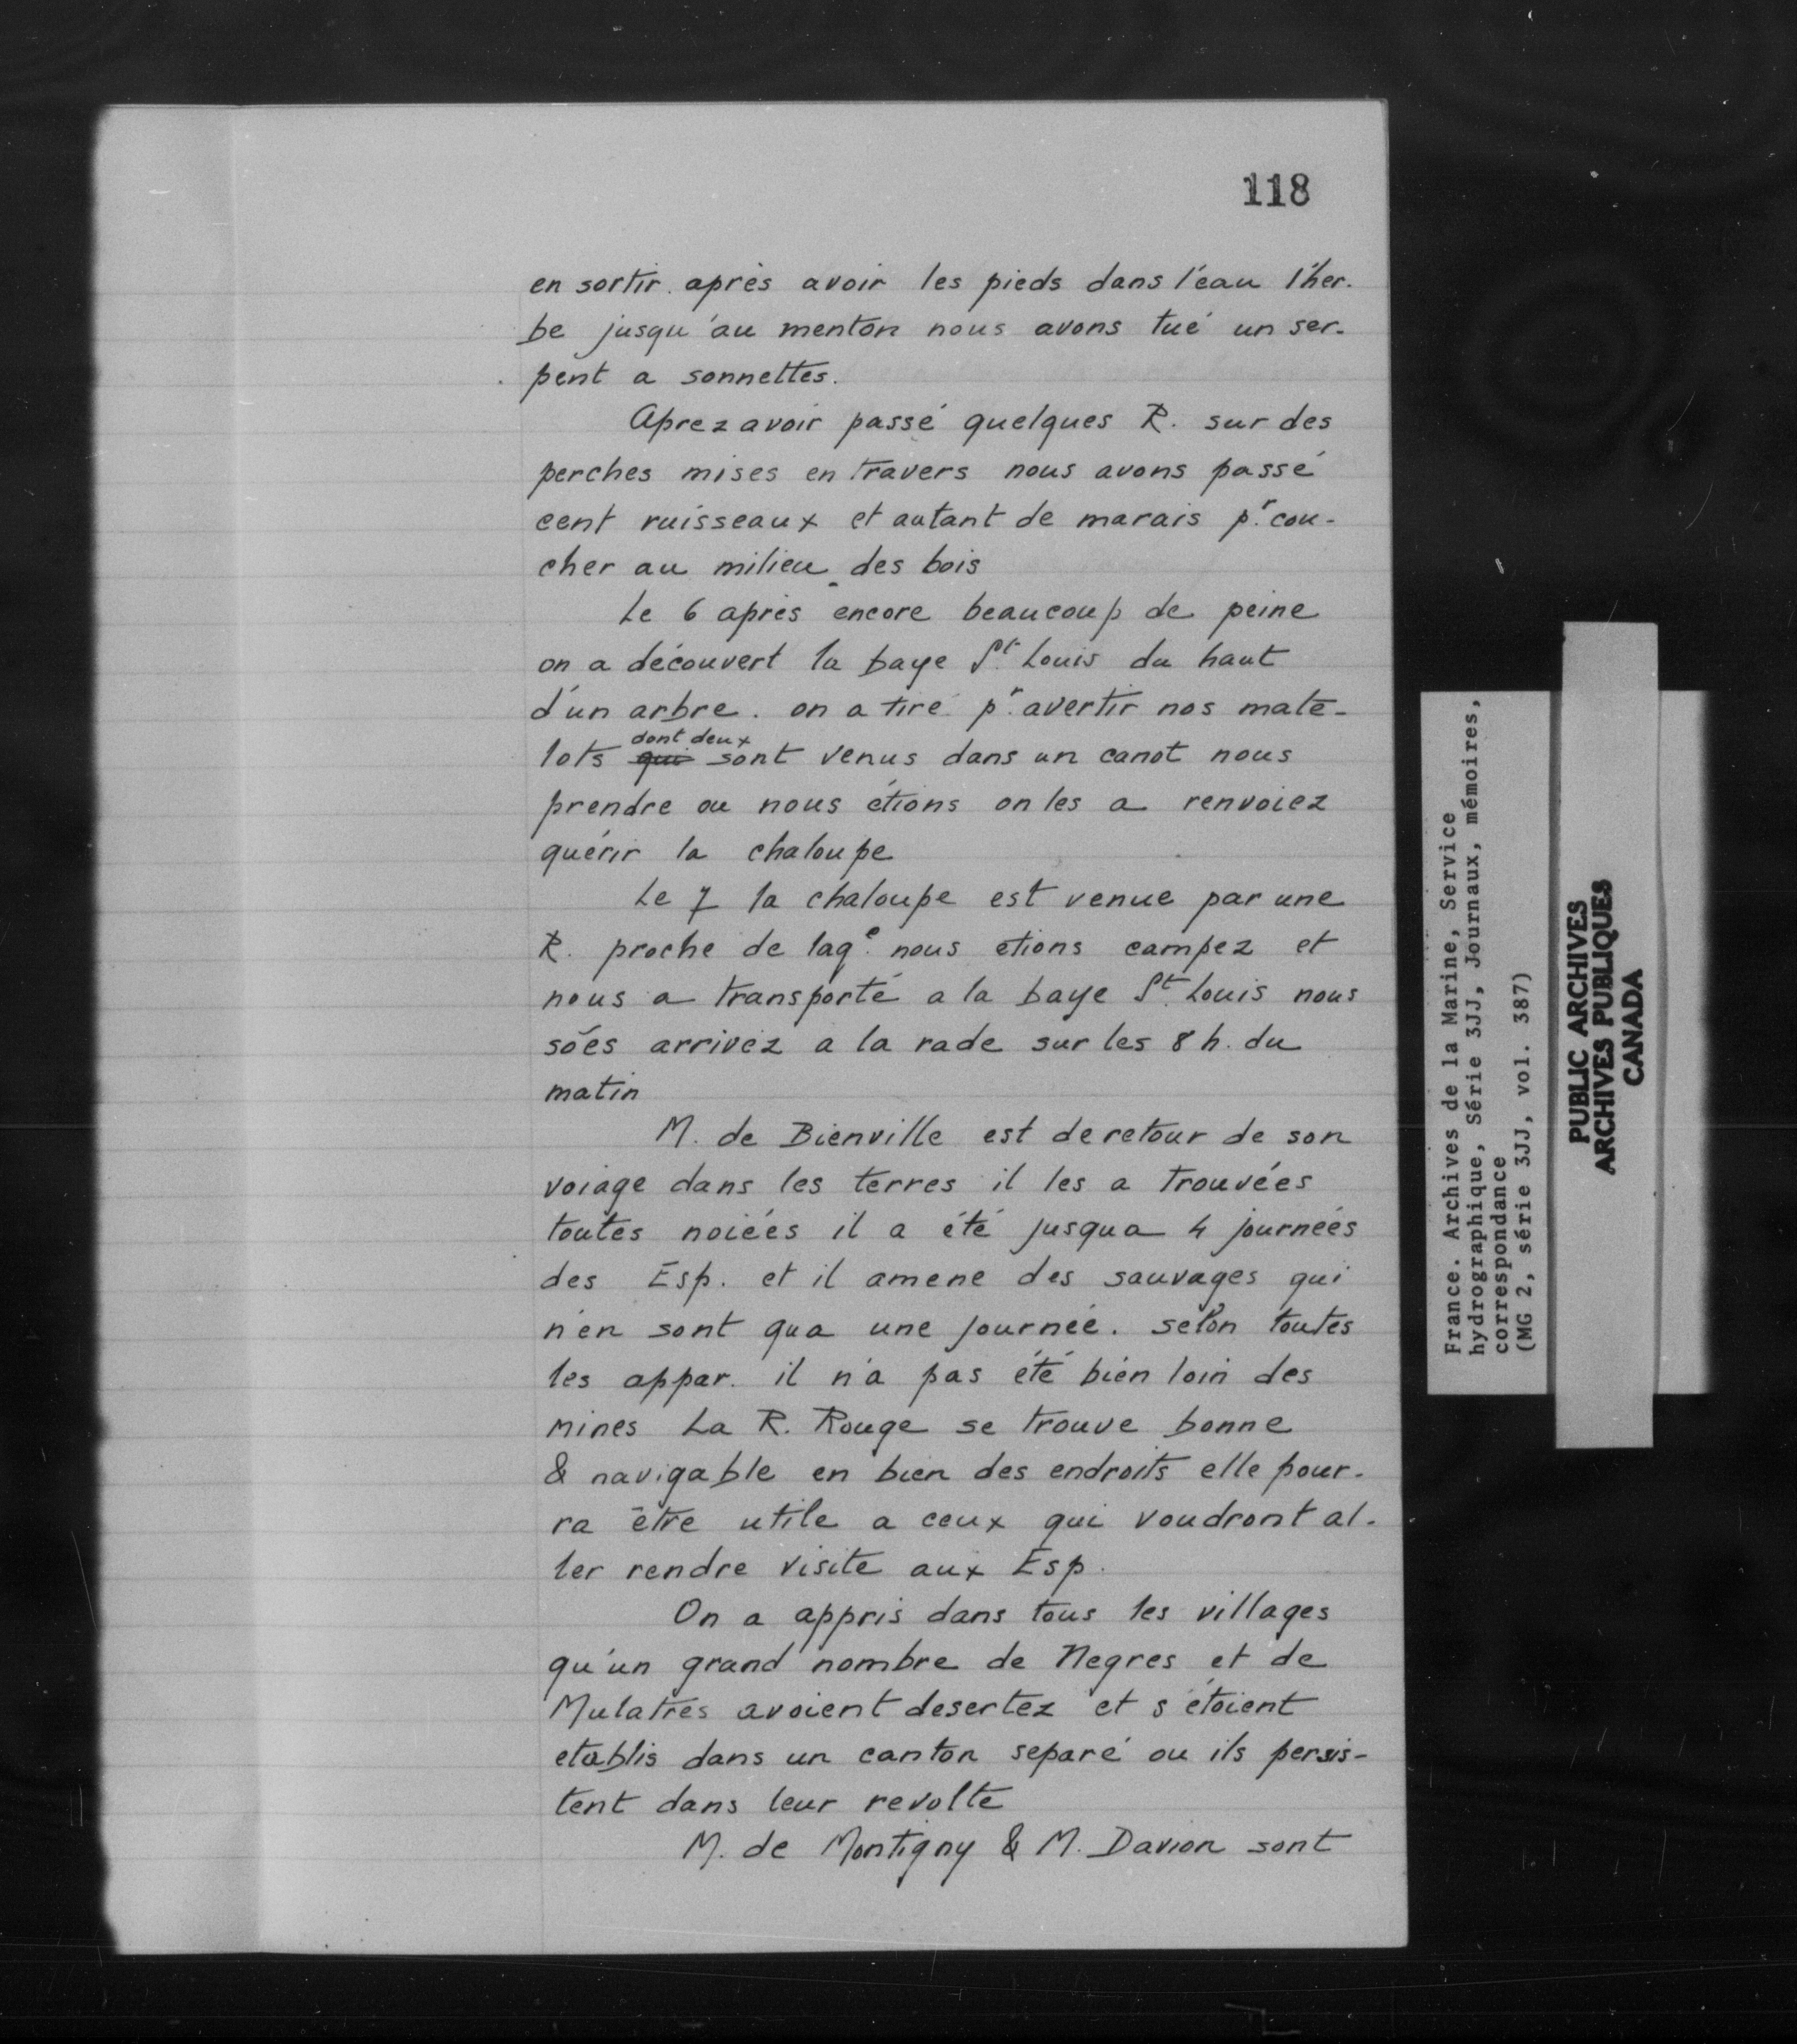 118
en sortir. après avoir les pieds dans l'eau l'her-
be jusqu'au menton nous avons tué un ser-
pent a sonnettes.
Aprez avoir passé quelques R. sur des
perches mises en travers nous avons passé
cent ruisseaux et autant de marais pr. cou-
cher au milieu des bois
Le 6 après encore beaucoup de peine
on a découvert la baye St. Louis du haut
d'un arbre. on a tiré pr. avertir nos mate-
dont deux
lots qui sont venus dans un canot nous
prendre ou nous étions on les a renvoiez
quérir la chaloupe
Le 7 la chaloupe est venue par une
R. proche de laqe. nous etions campez et
nous a transporté a la baye St. Louis nous
sões arrivez a la rade sur les 8 h. du
matin
M. de Bienville est de retour de son
voiage dans les terres il les a trouvées
toutes noiées il a été jusqua 4 journées
des Esp. et il amene des sauvages qui
n'en sont qua une journée. selon toutes
les appar. il n'a pas été bien loin des
mines La R. Rouge se trouve bonne
& navigable en bien des endroits elle pour-
ra être utile a ceux qui voudront al-
ler rendre visite aux Esp.
On a appris dans tous les villages
qu'un grand nombre de Negres et de
Mulatres avoient desertez et s'étoient
etablis dans un canton separé ou ils persis-
tent dans leur revolte
M. de Montigny & M. Davion sont
France. Archives de la Marine, Service
hydrographique, Série 3JJ, Journaux, mémoires,
correspondance
(MG 2, série 3JJ, vol. 387)
PUBLIC ARCHIVES
ARCHIVES PUBLIQUES
CANADA